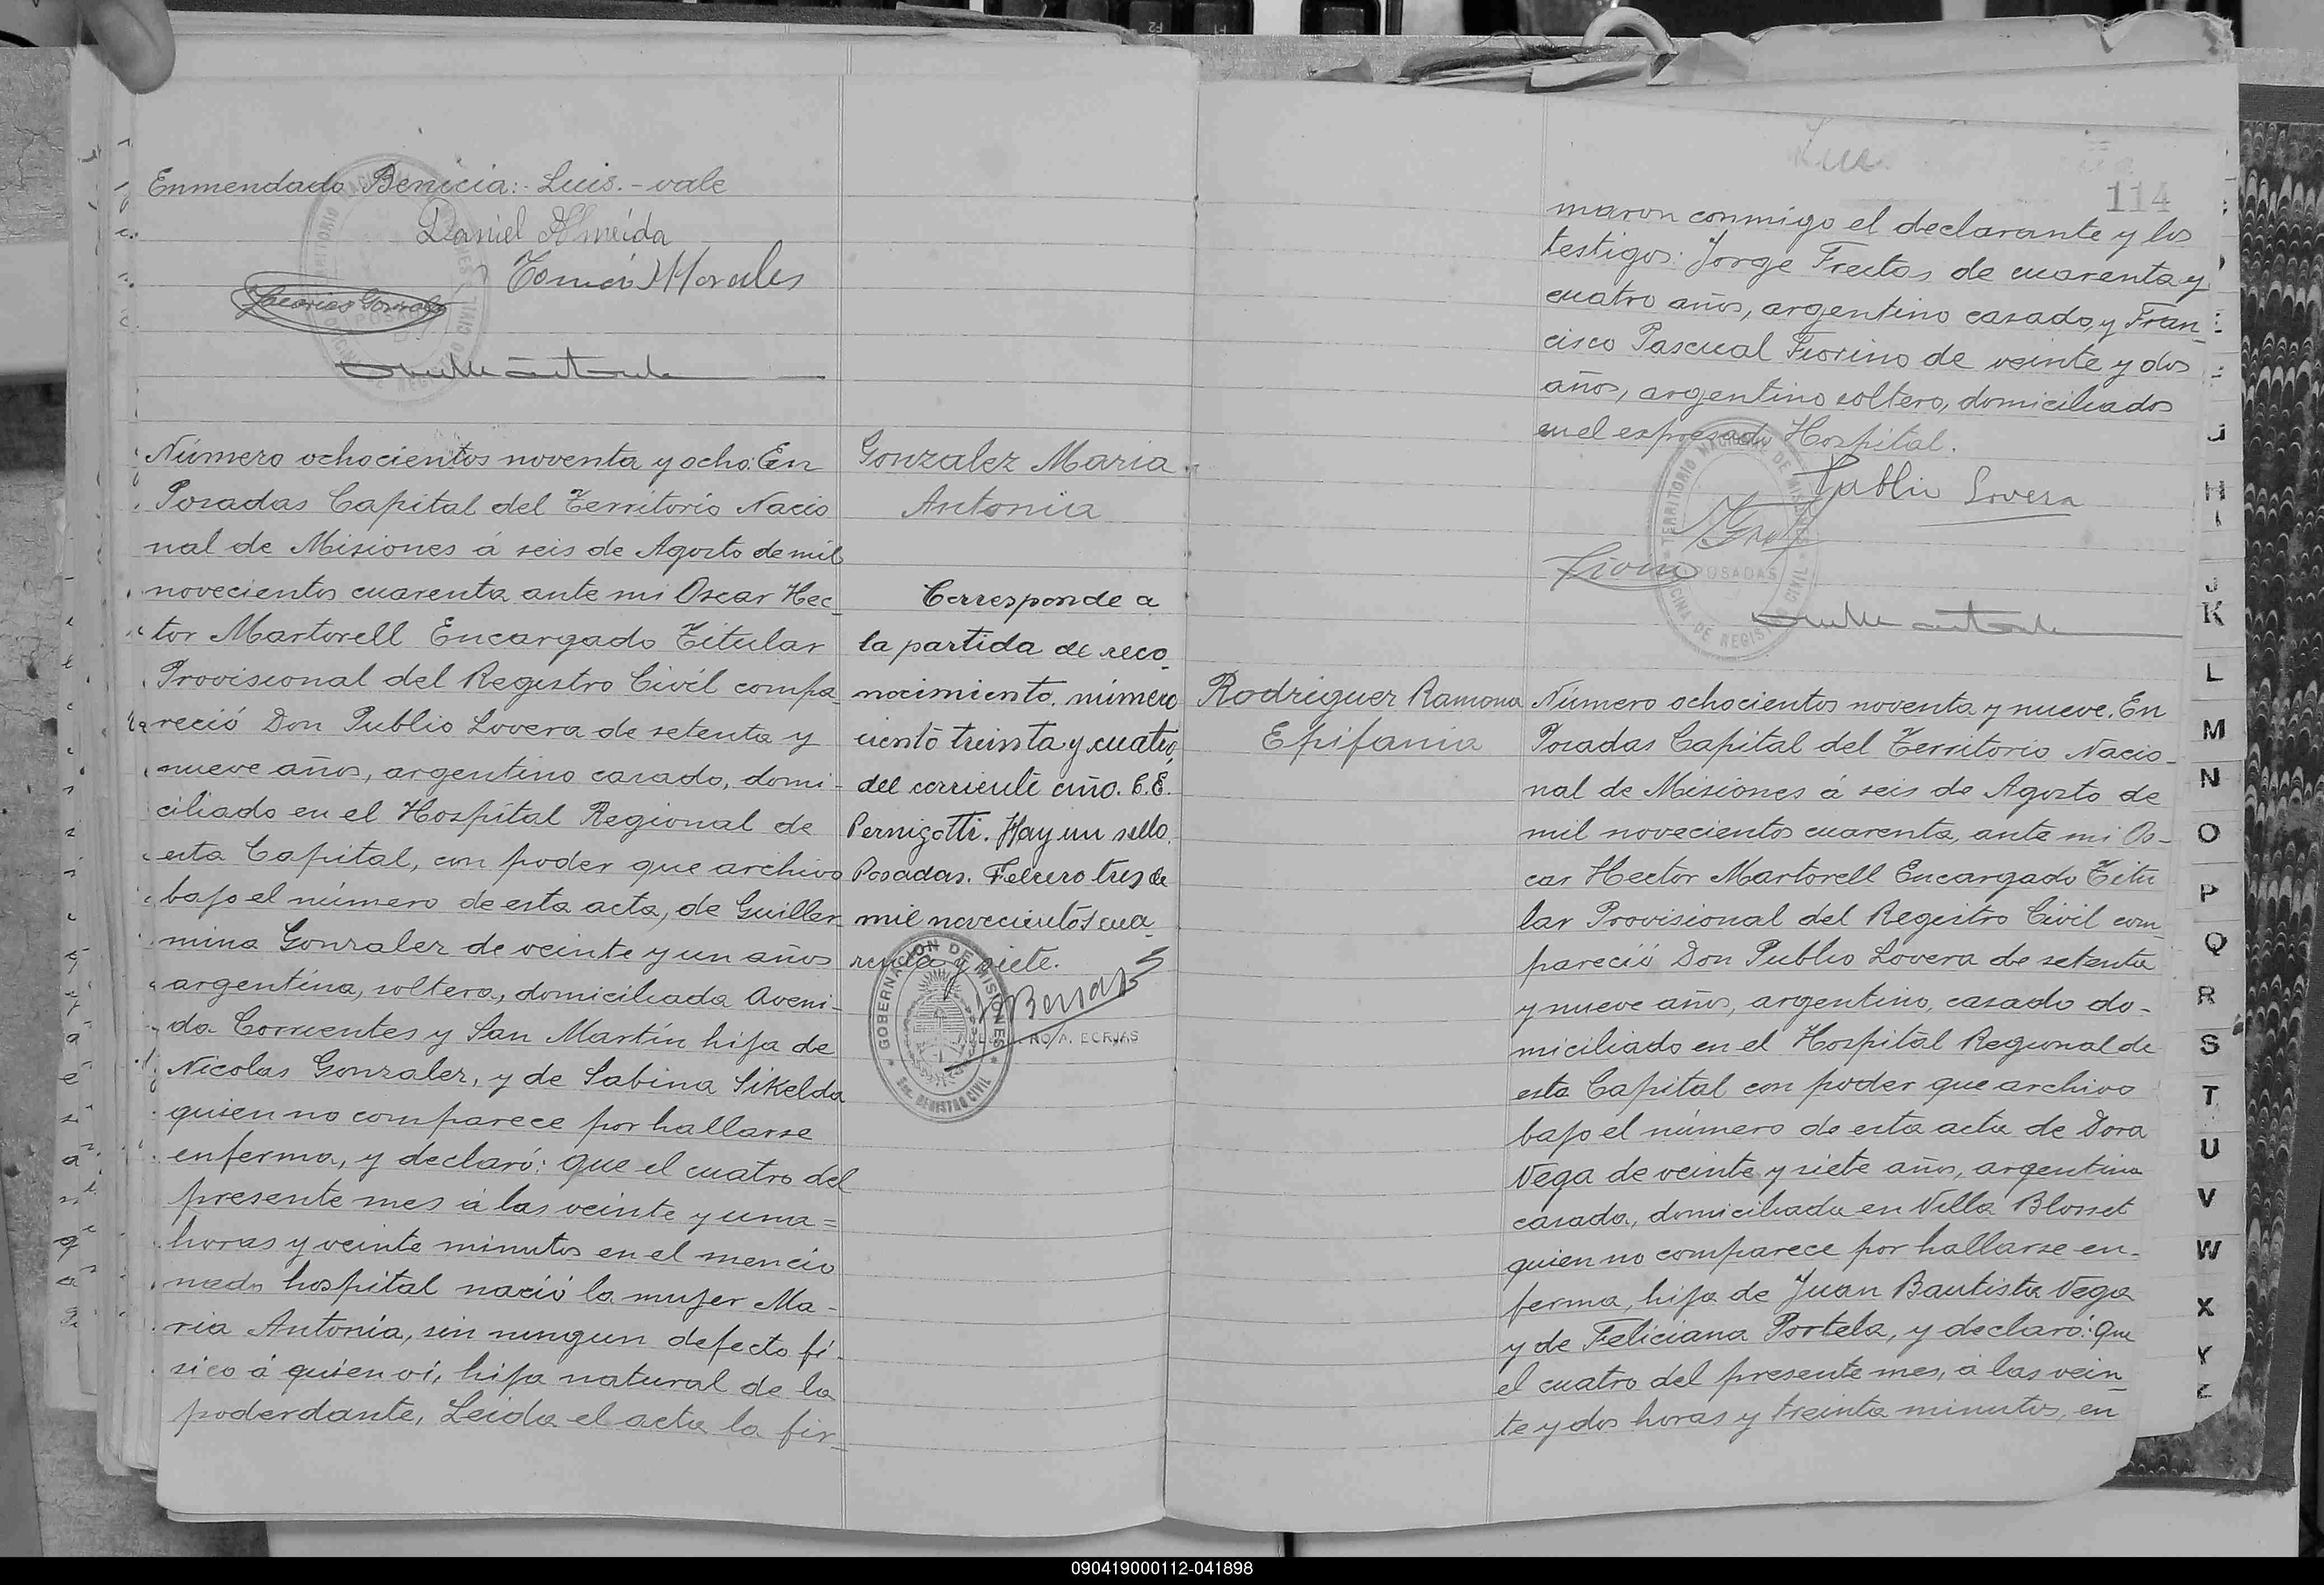 Enmendado Benicia:- Luis.- vale
Daniel Almeida
Tomás Morales
Número ochocientos noventa y ocho: En
Posadas Capital del Territorio Nacio
nal de Misiones á seis de Agosto de mil
novecientos cuarenta ante mi Oscar Hec-
tor Martorell Encargado Titular
Provisional del Registro Civil compa-
reció Don Publio Lovera de setenta y
nueve años, argentino casado, domi-
ciliado en el Hospital Regional de
esta Capital, con poder que archivo
bajo el número de esta acta, de Guiller-
mina Gonzalez de veinte y un años
argentina, soltera, domiciliada Aveni-
da Corrientes y San Martín hija de
Nicolas Gonzalez, y de Sabina Sikelda
quien no comparece por hallarse
enferma, y declaró: que el cuatro del
presente mes á las veinte y una=
horas y veinte minutos en el mencio
nado hospital nació la mujer Ma-
ria Antonia, sin ningun defecto fí-
sico á quien ví, hija natural de la
poderdante, Leida el acta la fir-
Gonzalez Maria
Antonia
Corresponde a
la partida de reco-
nocimiento, número
ciento treinta y cuatro,
del corriente año. C.E.
Pernigotti. Hay un sello.
Posadas. Febrero tres de
mil novecientos cua-
renta y siete.
GOBERNACION DE MISIONES
REGISTRO CIVIL
A. BORJAS
114
maron conmigo el declarante y los
testigos: Jorge Freitas de cuarenta y
cuatro años, argentino casado, y Fran-
cisco Pascual Fiorino de veinte y dos
años, argentino soltero, domiciliados
en el expresado Hospital.
Publio Lovera
TERRITORIO NACIONAL DE MISIONES
POSADAS
OFICINA DE REGISTRO CIVIL
Rodriguez Ramona
Epifania
Número ochocientos noventa y nueve. En
Posadas Capital del Territorio Nacio-
nal de Misiones á seis de Agosto de
mil novecientos cuarenta, ante mi Os-
car Hector Martorell Encargado Titu
lar Provisional del Registro Civil com-
pareció Don Publio Lovera de setenta
y nueve años, argentino, casado do-
miciliado en el Hospital Regional de
esta Capital con poder que archivo
bajo el número de esta acta de Dora
Vega de veinte y siete años, argentina
casada, domiciliada en Villa Blosset
quien no comparece por hallarse en-
ferma, hija de Juan Bautista Vega
y de Feliciana Portela, y declaró: Que
el cuatro del presente mes, á las vein-
te y dos horas y treinta minutos, en
H
I
J
K
L
M
N
O
P
Q
R
S
T
U
V
W
X
Y
Z
090419000112-041898